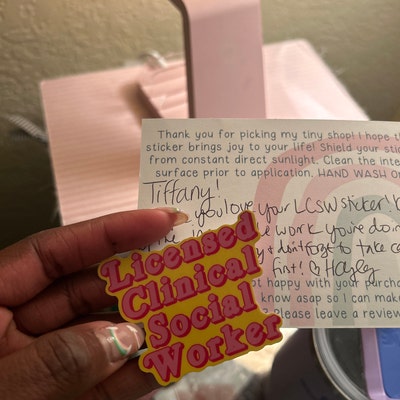 Thank you for picking my tiny shop! I hope th
sticker brings joy to your life! Shield your stic
from constant direct sunlight. Clean the inte
surface prior to application. HAND WASH O
Tiffany!
you love your LCSW sticker!
work you're doin
& don't forget to take ca
first! Hayley
ot happy with your purcha
know asap so I can mak
Please leave a review
Licensed
Clinical
Social
Worker